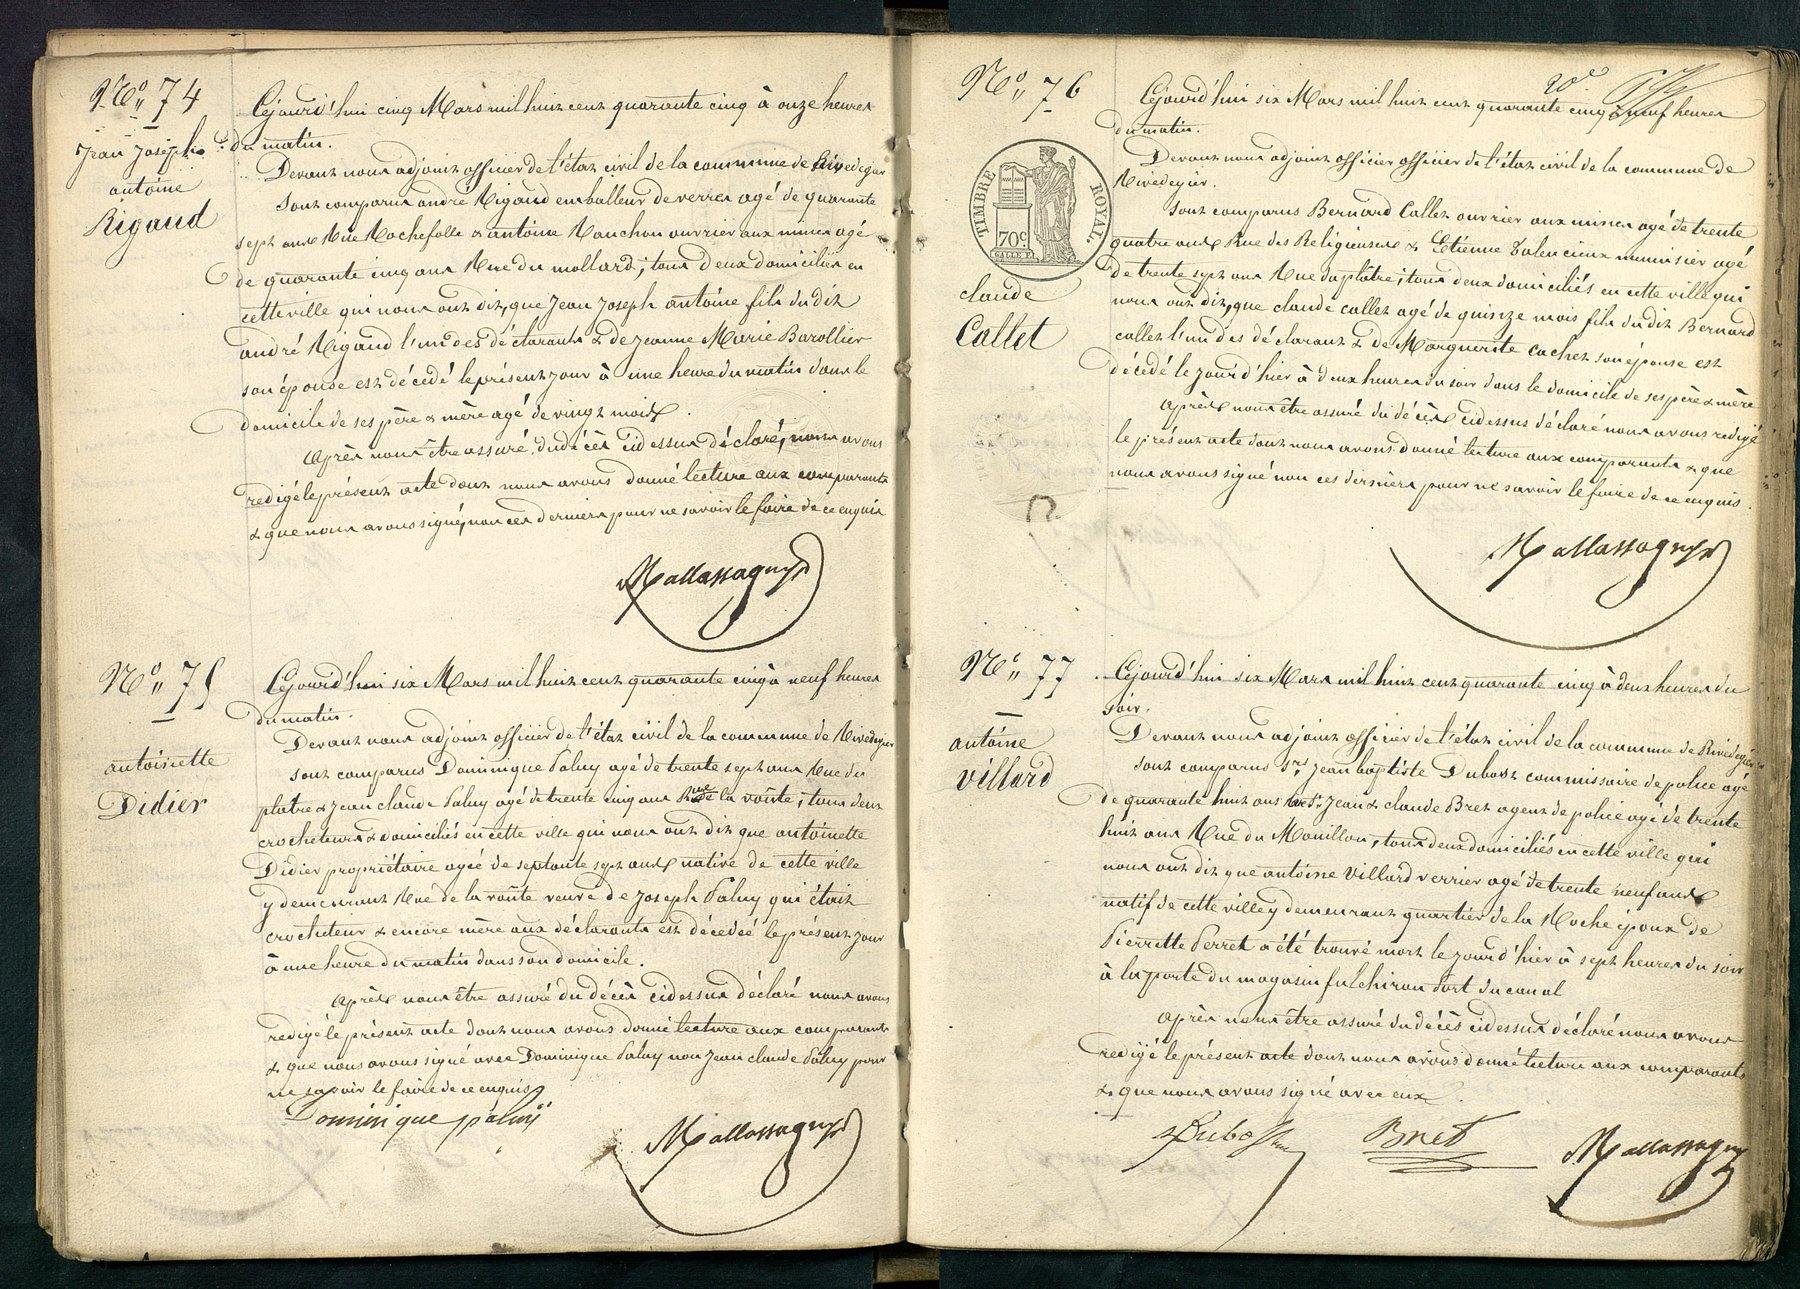 N° 74
Jean Joseph
antoine
Rigaud
Cejourd'hui cinq Mars mil huit cent quarante cinq à onze heures
du matin.
Devant nous adjoint officier de l'état civil de la commune de Rivedegier
sont comparus andré Rigaud emballeur de verres agé de quarante
sept ans Rue Rochefolle & antoine Ranchon ouvrier aux mines agé
de quarante cinq ans Rue du mollard; tous deux domiciliés en
cette ville qui nous ont dit, que Jean Joseph antoine fils du dit
andré Rigaud l'un des déclarants & de Jeanne Marie Barollier
son épouse est décédé le présent jour à une heure du matin dans le
domicile de ses père & mère agé de vingt mois.
Après nous être assuré du décès cidessus déclaré, nous avons
redigé le présent acte dont nous avons donné lecture aux comparants
& que nous avons signé, non ces derniers pour ne savoir le faire de ce enquis
Mallassagny
N° 75
antoinette
Didier
Cejourd'hui six Mars mil huit cent quarante cinq à neuf heures
du matin.
Devant nous adjoint officier de l'état civil de la commune de Rivedegier
sont comparus Dominique Paluy agé de trente sept ans Rue du
platre & Jean claude Paluy agé de trente cinq ans Rue de la voûte; tous deux
crocheteurs & domiciliés en cette ville qui nous ont dit que antoinette
Didier propriétaire agée de septante sept ans native de cette ville
y demeurant Rue de la voûte veuve de Joseph Paluy qui était
crocheteur & encore mère aux déclarants est décédée le présent jour
à une heure du matin dans son domicile.
Après nous être assuré du décès cidessus déclaré nous avons
redigé le présent acte dont nous avons donné lecture aux comparants
& que nous avons signé avec Dominique Paluy non Jean claude Paluy pour
ne savoir le faire de ce enquis
Dominique paluy
Mallassagny
N° 76
TIMBRE ROYAL.
70c.
claude
Callet
20e
Cejourd'hui six Mars mil huit cent quarante cinq à neuf heures
du matin.
Devant nous adjoint officier officier de l'état civil de la commune de
Rivedegier.
sont comparus Bernard Callet ouvrier aux mines agé de trente
quatre ans Rue des Religieuses & Etienne Valencieux menuisier agé
de trente sept ans Rue du plâtre; tous deux domiciliés en cette ville qui
nous ont dit, que claude callet agé de quinze mois fils du dit Bernard
callet l'un des déclarant & de Marguerite cachet son épouse est
décédé le jour d'hier à deux heures du soir dans le domicile de ses père & mère
Après nous être assuré du décès cidessus déclaré nous avons redigé
le présent acte dont nous avons donné lecture aux comparants & que
nous avons signé non ces derniers pour ne savoir le faire de ce enquis.
Mallassagny
N° 77
antoine
villard
Cejourd'hui six Mars mil huit cent quarante cinq à deux heures du
soir.
Devant nous adjoint officier de l'état civil de la commune de Rivedegier
sont comparus Srs Jean baptiste Dubost commissaire de police agé
de quarante huit ans & Jean claude Bret agent de police agé de trente
huit ans Rue du Mouillon, tous deux domiciliés en cette ville qui
nous ont dit que antoine villard verrier agé de trente neuf ans
natif de cette ville y demeurant quartier de la Roche époux de
Pierrette Perret a été trouvé mort le jour d'hier à sept heures du soir
à la porte du magasin fulchiron port du canal
Après nous être assuré du décès cidessus déclaré nous avons
redigé le présent acte dont nous avons donné lecture aux comparants
& que nous avons signé avec eux.
Dubost
Bret
Mallassagny